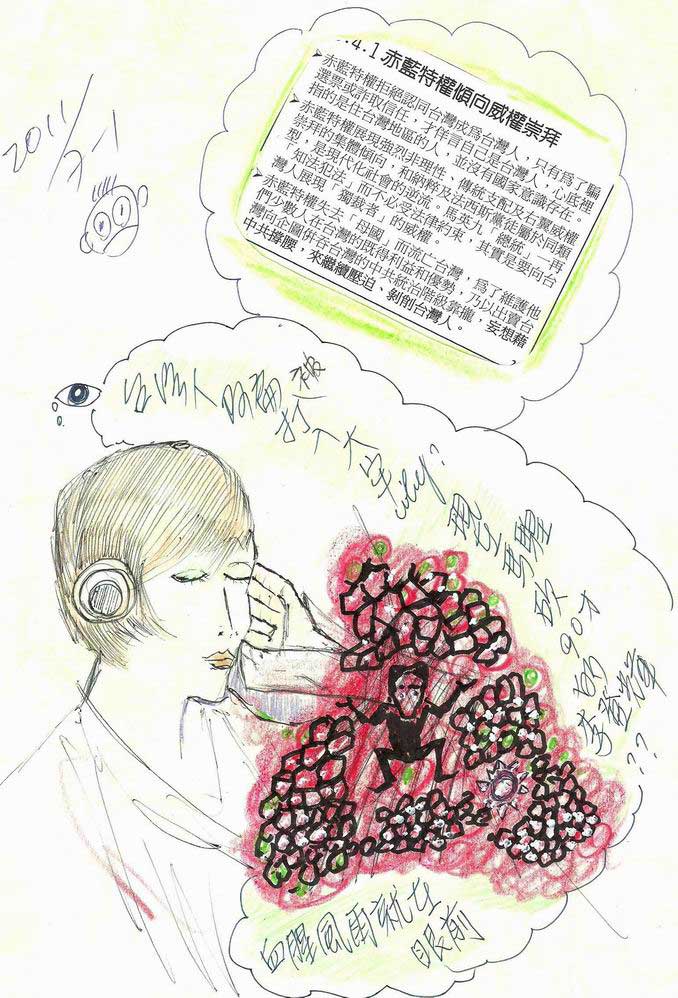 .4.1 赤藍特權傾向威權崇拜
➢赤藍特權拒絕認同台灣成為台灣人，只有為了騙
選票或詐取信任，才佯言自己是台灣人，心底裡
指的是住台灣地區的人，並沒有國家意識存在。
➢赤藍特權展現強烈非理性、傳統支配及右翼威權
崇拜的集體傾向，和納粹及法西斯黨徒屬於同類
型，是現代化社會的逆流。馬英九「總統」一再
「知法犯法」而不心受法律約束，其實是要向台
灣人展現「獨裁者」的威權。
➢赤藍特權失去「母國」而流亡台灣，為了維護他
們少數人在台灣的既得利益和優勢，乃以出賣台
灣向企圖併吞台灣的中共統治階級靠攏，妄想藉
中共撐腰，來繼續壓迫、剝削台灣人。
2011/7-1
台灣人 被打入大牢
90才的李登輝??
血腥風雨就在
眼前